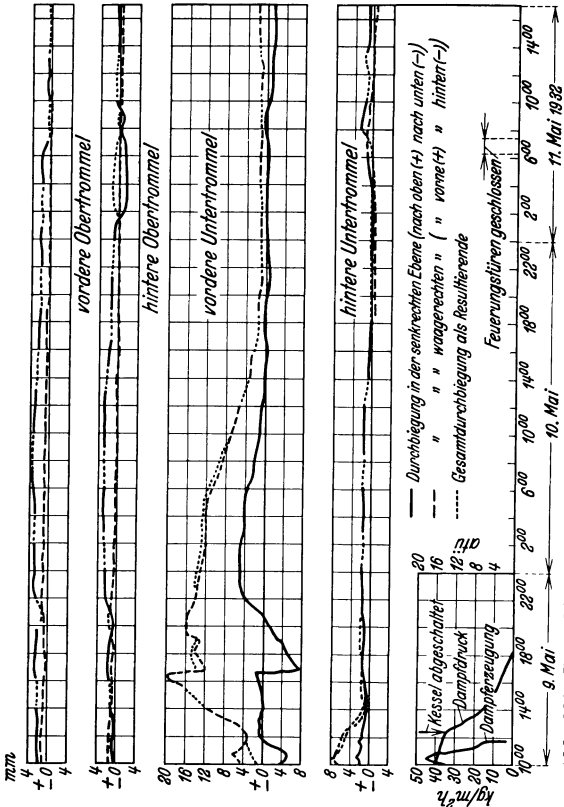 mm
4
+
0
-
4
vordere Obertrommel
4
+
0
-
4
hintere Obertrommel
20
16
12
8
4
+
0
-
4
8
vordere Untertrommel
8
4
+
0
-
4
hintere Untertrommel
Durchbiegung in der senkrechten Ebene (nach oben (+) nach unten (-)
" " waagerechten " ( " vorne (+) " hinten (-))
Gesamtdurchbiegung als Resultierende
Feuerungstüren geschlossen!
kg/m²h
50
40
30
20
10
0
Kessel abgeschaltet
Dampfdruck
Dampferzeugung
20
16
12
8
4
atü
10⁰⁰ 14⁰⁰ 18⁰⁰ 22⁰⁰ 2⁰⁰ 6⁰⁰ 10⁰⁰ 14⁰⁰ 18⁰⁰ 22⁰⁰ 2⁰⁰ 6⁰⁰ 10⁰⁰ 14⁰⁰
9. Mai 10. Mai 11. Mai 1932